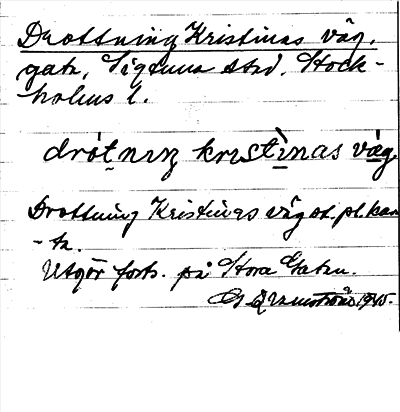 Drottning Kristinas väg,
gata, Sigtuna stad, Stock-
holms l.
drót̤nıŋ krıstìnas vä̀g
Drottning Kristinas väg st. pl. kar
- ta.
Utgör forts. på Stora Gatan.
1945.